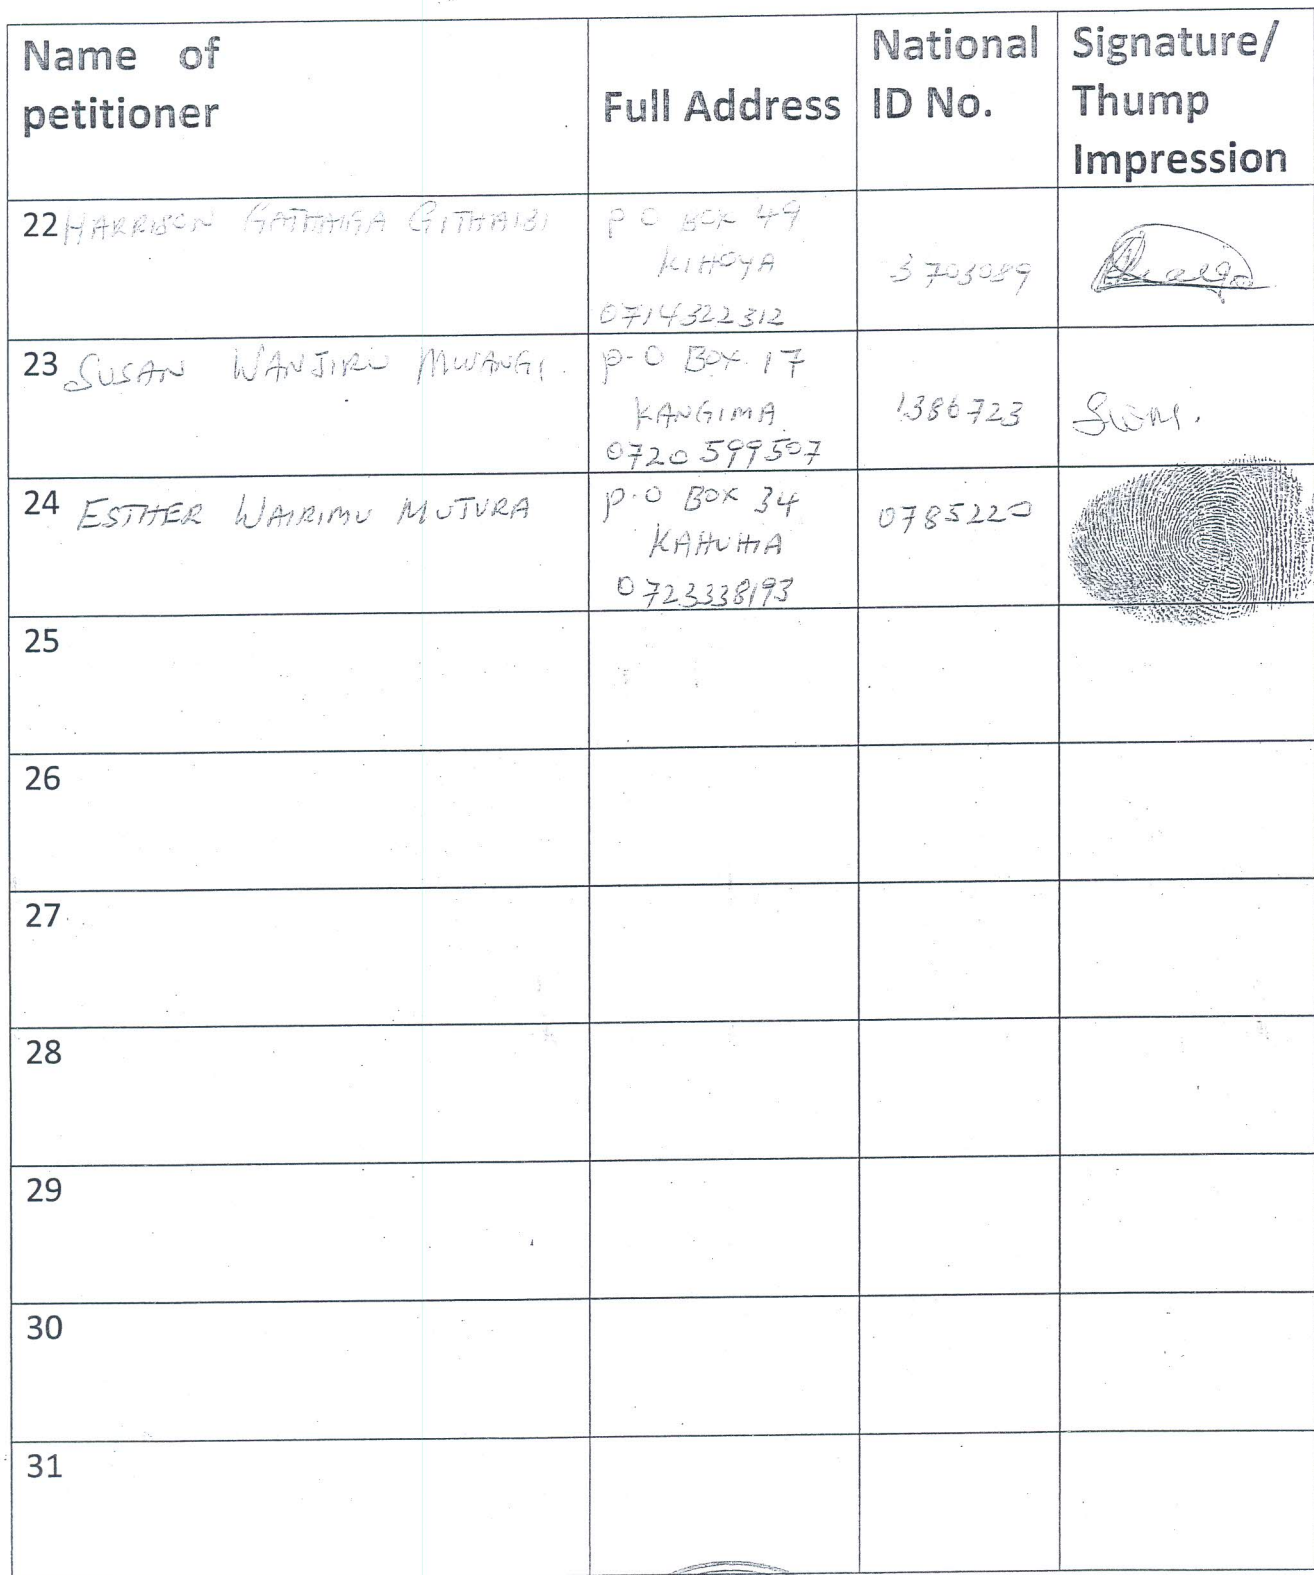 Name of
petitioner
Full Address
National
ID No.
Signature/
Thump
Impression
22 HARRISON GATHAIGA GITHAIBI
P O BOX 49
KIHOYA
0714322312
3703089
23 SUSAN WANJIRU MWANGI.
P-O BOX 17
KANGIMA
0720599507
1386723
24 ESTHER WAIRIMU MUTURA
P.O BOX 34
KAHUHIA
0723338193
0785220
25
26
27
28
29
30
31